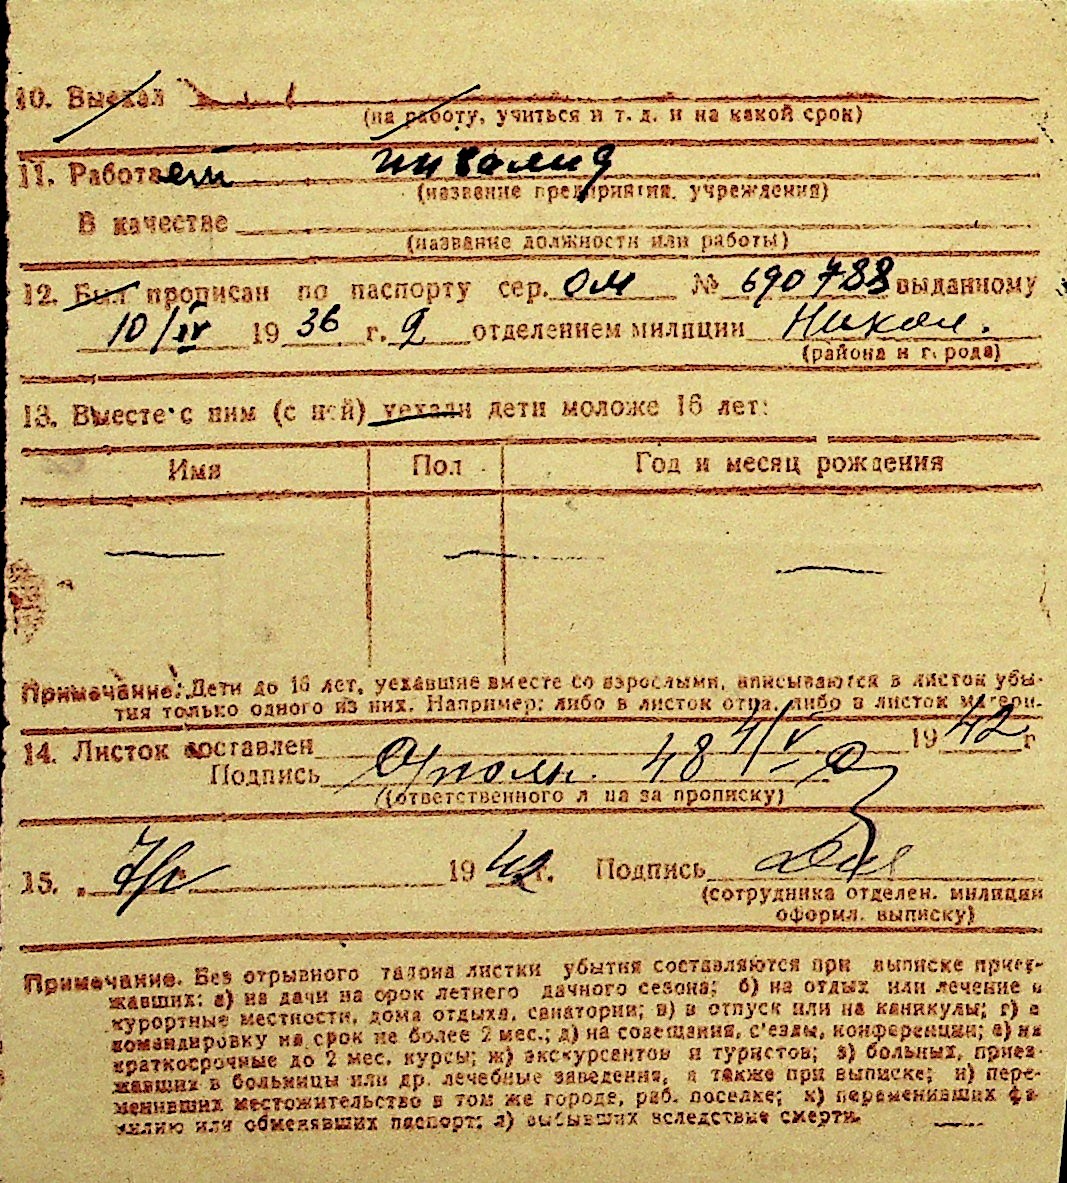 10. Выехал
(на работу, учиться и т. д. и на какой срок)
11. Работает инвалид
(название предприятия, учреждения)
В качестве
(название должности или работы)
12. Был прописан по паспорту сер. ОМ № 690788 выданному
10/IV 1936 г. 2 отделением милиции Никол.
(района и города)
13. Вместе с ним (с ней) уехали дети моложе 16 лет:
Имя Пол Год и месяц рождения
Примечание: Дети до 16 лет, уехавшие вместе со взрослыми, вписываются в листок убы-
тия только одного из них. Например: либо в листок отца, либо в листок матери.
14. Листок составлен 4/V 1942 г
Подпись Уполн. 48
(ответственного лица за прописку)
15. „ 7/V 1942 г. Подпись
(сотрудника отделен. милиции
оформл. выписку)
Примечание. Без отрывного талона листки убытия составляются при выписке приез-
жавших: а) на дачи на срок летнего дачного сезона; б) на отдых или лечение в
курортные местности, дома отдыха, санатории; в) в отпуск или на каникулы; г) в
командировку на срок не более 2 мес.; д) на совещания, с'езды, конференции; е) на
краткосрочные до 2 мес. курсы; ж) экскурсантов и туристов; з) больных, приез-
жавших в больницы или др. лечебные заведения, а также при выписке; и) пере-
менивших местожительство в том же городе, раб. поселке; к) переменивших фа-
милию или обменявших паспорт; л) выбывших вследствие смерти.